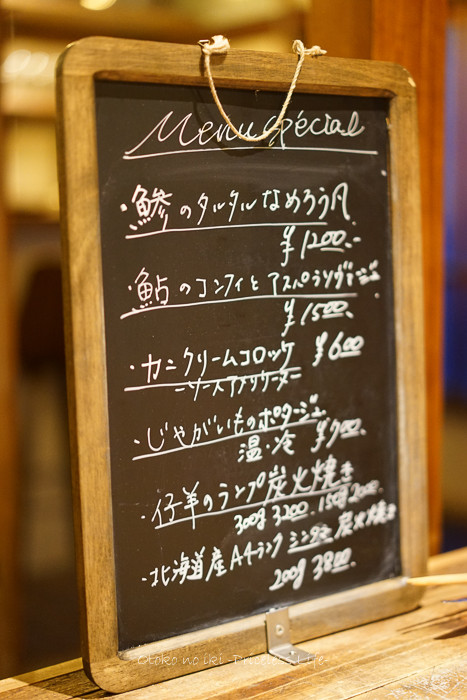 Menu spécial
・鯵のタルタルなめろう風
¥1200.-
・鮎のコンフィと アスパラソヴァージュ
¥1500.-
・カニクリームコロッケ ¥600
-ソースアメリケーヌ-
・じゃがいものポタージュ
温・冷 ¥700.-
・仔羊のランプ炭火焼き
300g 3200. 150g 2000.
・北海道産A4ランク 炭火焼き
200g 3800.
Otoko no iki -Priceless Life-